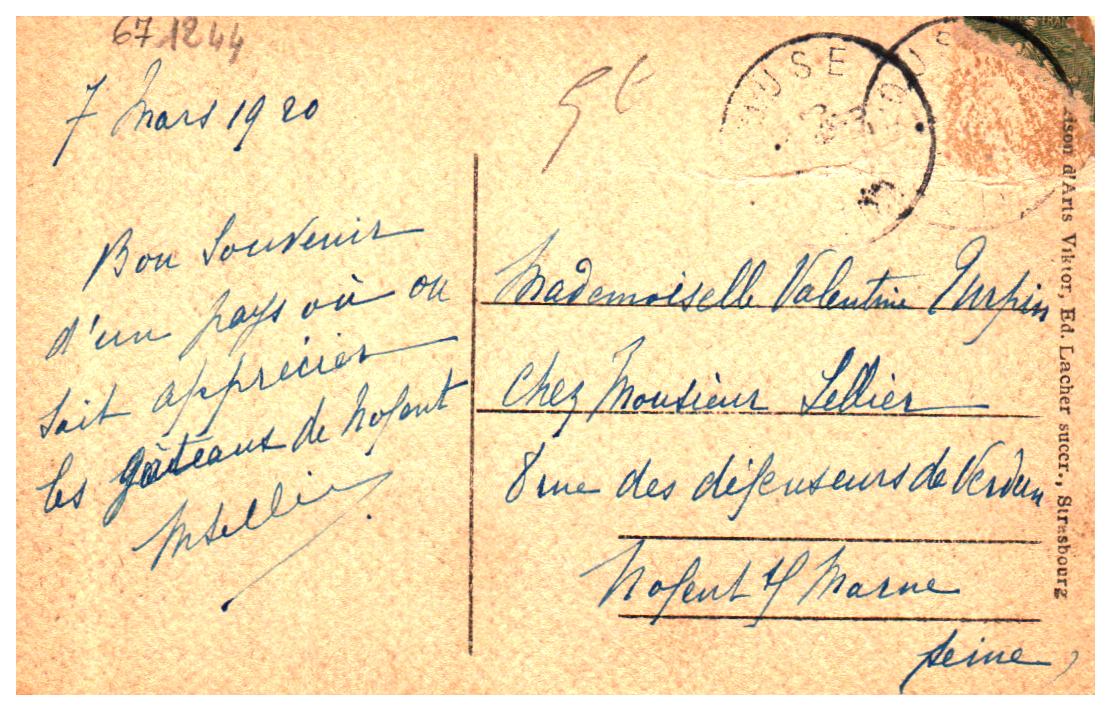 671244
7 Mars 1920
5 €
Bon Souvenir
d'un pays où on
sait apprécier
les gâteaux de Nogent
MSellier
Mademoiselle Valentine Turpin
Chez Monsieur Sellier
8 rue des défenseurs de Verdun
Nogent s/ Marne
Seine
d'Arts Viktor, Ed. Lacher succr., Strasbourg